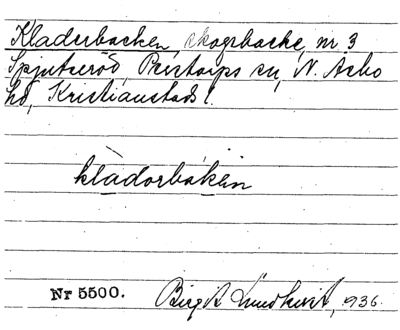 Kladerbacken, skogsbacke, nr 3
Spjutseröd, Perstorps sn, N. Åsbo
hd, Kristianstads l.
klàdorbákein
Nr 5500.
Birgit Lundkvist, 1936.